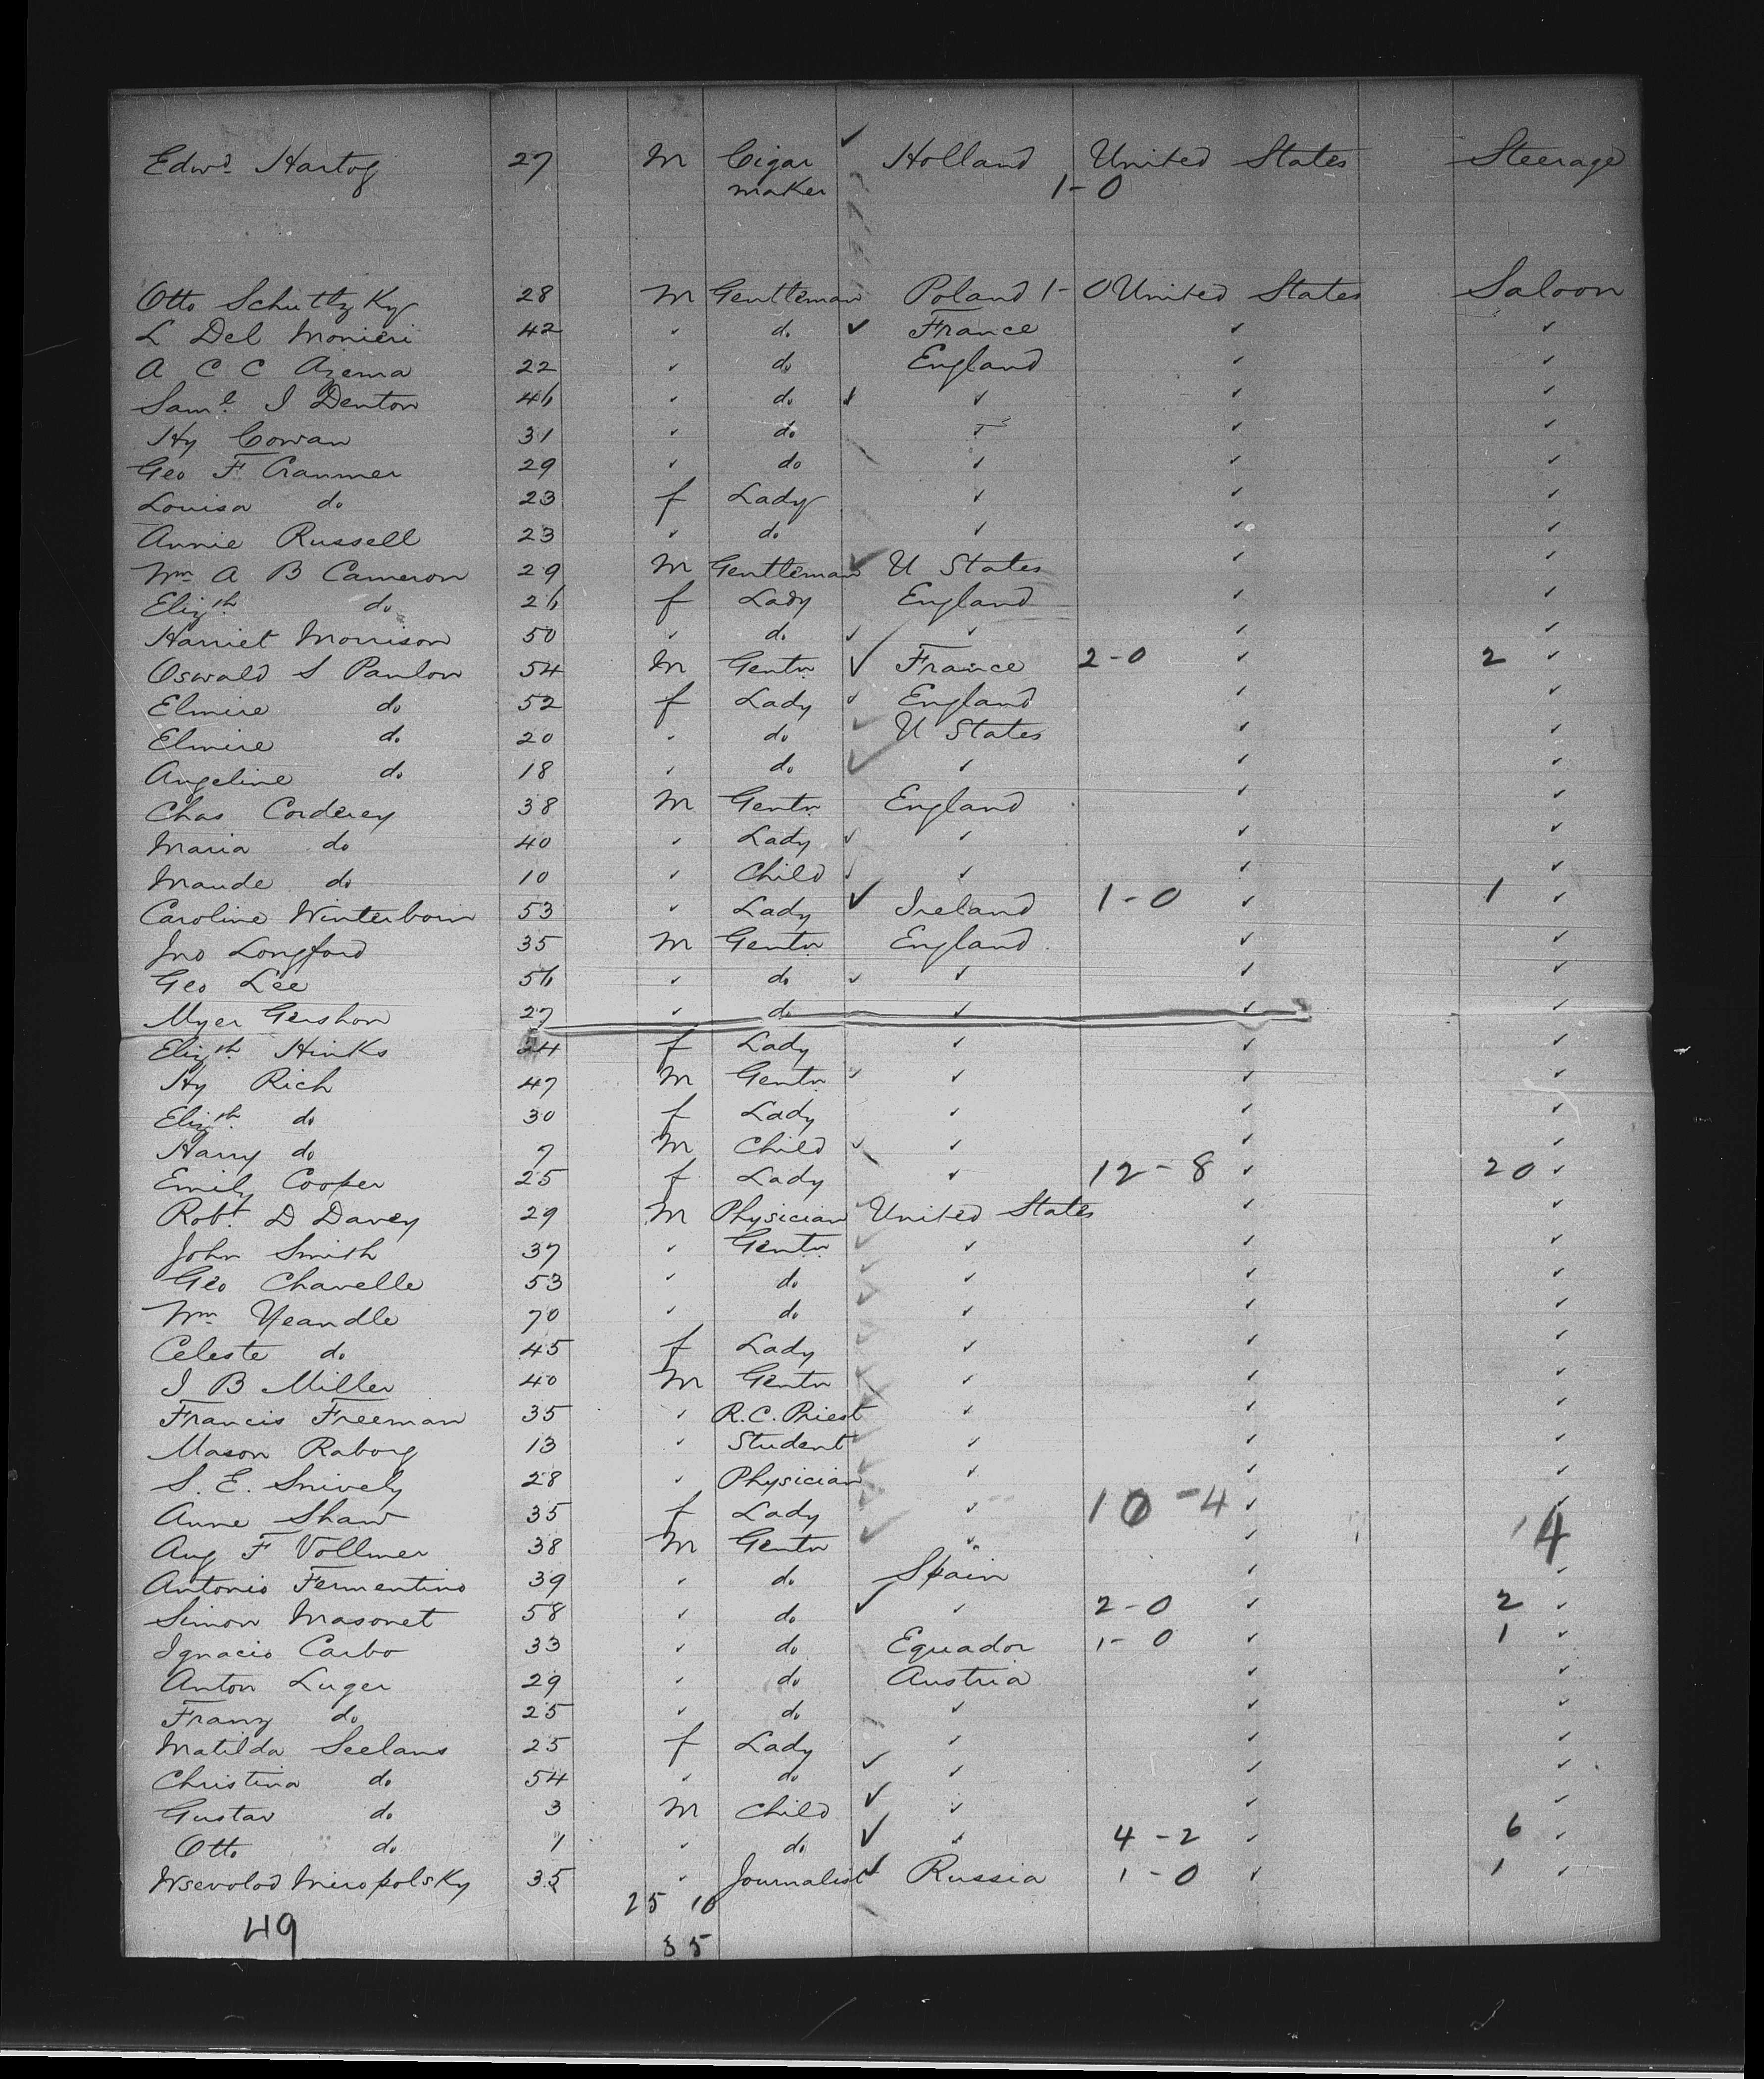 Edwd Hartog 27 M Cigar ✓ Holland United States Steerage
maker 1-0
Otto Schuttzky 28 M Gentleman Poland 1-0 United States Saloon
L Del Monieri 42 ✓ do ✓ France ✓ ✓
A C C Azema 22 ✓ do England ✓ ✓
Saml I Denton 46 ✓ do ✓ ✓ ✓ ✓
Hy Cowan 31 ✓ do ✓ ✓ ✓
Geo F Cranmer 29 ✓ do ✓ ✓ ✓
Louisa do 23 f Lady ✓ ✓ ✓
Annie Russell 23 ✓ do ✓ ✓ ✓
Wm A B Cameron 29 M Gentleman ✓ U States ✓ ✓
Elizth do 26 f Lady England ✓ ✓
Harriet Morrison 50 ✓ do ✓ ✓ ✓ ✓
Oswald S Paulon 54 M Gentn ✓ France 2-0 ✓ 2 ✓
Elmire do 52 f Lady ✓ England ✓ ✓
Elmire do 20 ✓ do ✓ U States ✓ ✓
Angeline do 18 ✓ do ✓ ✓ ✓ ✓
Chas Corderey 38 M Gentn England ✓ ✓
Maria do 40 ✓ Lady ✓ ✓ ✓ ✓
Maude do 10 ✓ Child ✓ ✓ ✓ ✓
Caroline Winterbourn 53 ✓ Lady ✓ Ireland 1-0 ✓ 1 ✓
Jno Longford 35 M Gentn England ✓ ✓
Geo Lee 56 ✓ do ✓ ✓ ✓ ✓
Myer Gershon 27 ✓ do ✓ ✓ ✓
Elizth Hinks 24 f Lady ✓ ✓ ✓
Hy Rich 47 M Gentn ✓ ✓ ✓ ✓
Elizth do 30 f Lady ✓ ✓ ✓
Harry do 7 M Child ✓ ✓ ✓ ✓
Emily Cooper 25 f Lady ✓ 12-8 ✓ 20 ✓
Robt D Davey 29 M Physician ✓ United States ✓ ✓
John Smith 37 ✓ Gentn ✓ ✓ ✓ ✓
Geo Chavelle 53 ✓ do ✓ ✓ ✓ ✓
Wm Yeandle 70 ✓ do ✓ ✓ ✓ ✓
Celeste do 45 f Lady ✓ ✓ ✓ ✓
I B Miller 40 M Gentn ✓ ✓ ✓ ✓
Francis Freeman 35 ✓ R.C. Priest ✓ ✓ ✓ ✓
Mason Raborg 13 ✓ Student ✓ ✓ ✓ ✓
S. E. Snively 28 ✓ Physician ✓ ✓ ✓ ✓
Anne Shaw 35 f Lady ✓ ✓ 10-4 ✓ ✓
Aug F Vollmer 38 M Gentn ✓ ✓ ✓ 14
Antonio Fermentino 39 ✓ do Spain ✓ ✓
Simon Masonet 58 ✓ do ✓ ✓ 2-0 ✓ 2 ✓
Ignacio Carbo 33 ✓ do Equador 1-0 ✓ 1 ✓
Anton Luger 29 ✓ do Austria ✓ ✓
Franz do 25 ✓ do ✓ ✓ ✓
Matilda Seelans 25 f Lady ✓ ✓ ✓
Christina do 54 ✓ do ✓ ✓ ✓ ✓
Gustav do 3 M Child ✓ ✓ ✓ ✓
Otto do 1 ✓ do ✓ ✓ 4-2 ✓ 6 ✓
Wsevolod Miropolsky 35 ✓ Journalist ✓ Russia 1-0 ✓ 1 ✓
25 10
49 35